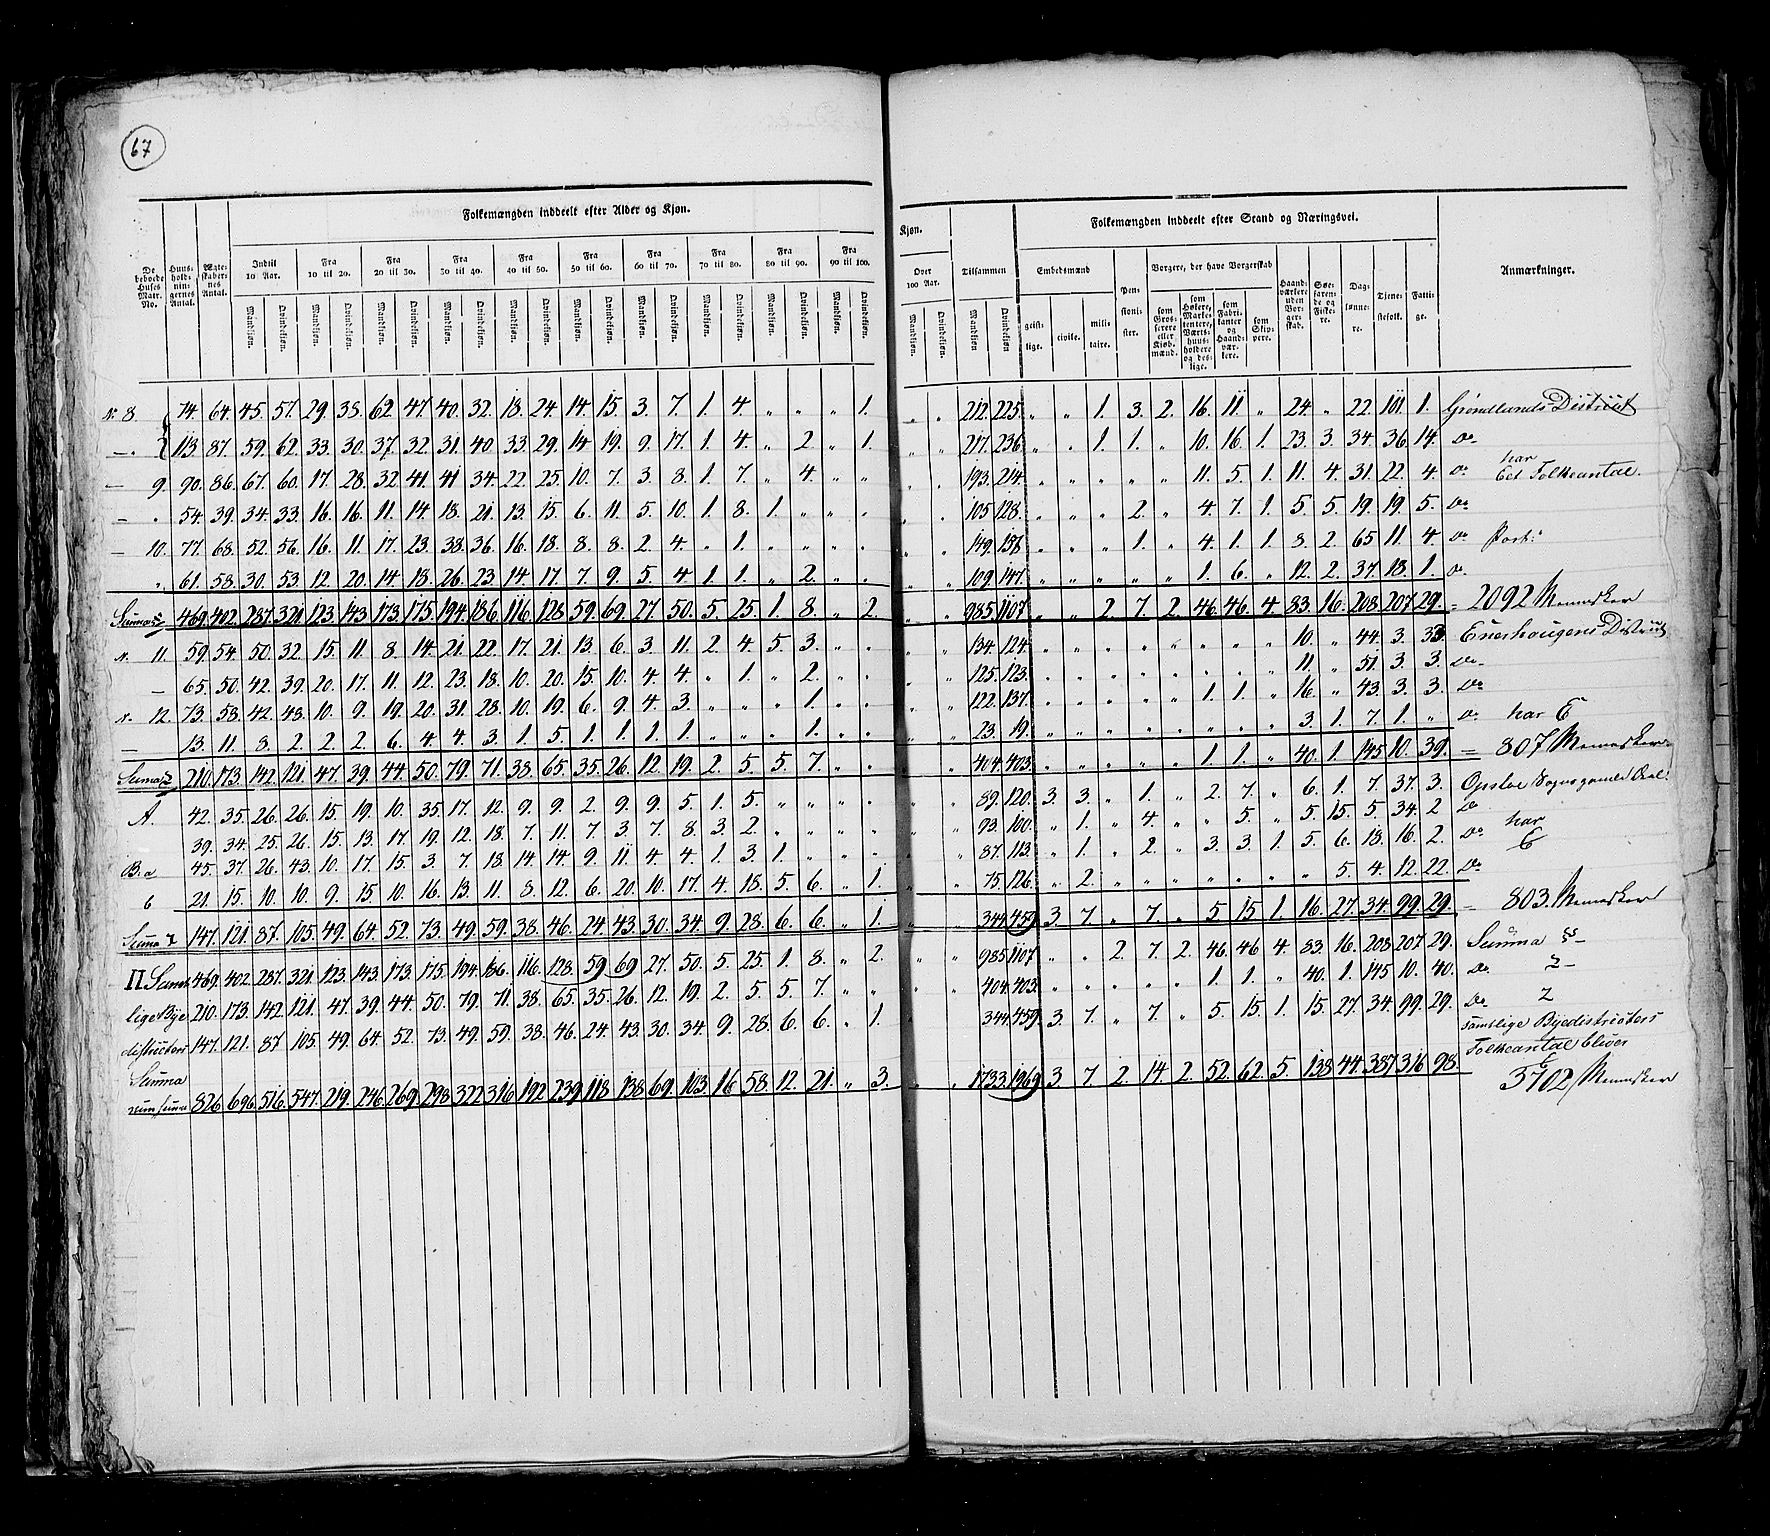 67
Folkemængden inddeelt efter Alder og Kjøn.
De beboede Huses Matr. No.
Huusholdningernes Antal.
Ægteskabernes Antal.
Indtil 10 Aar.
Fra 10 til 20.
Fra 20 til 30.
Fra 30 til 40.
Fra 40 til 50.
Fra 50 til 60.
Fra 60 til 70.
Fra 70 til 80.
Fra 80 til 90.
Fra 90 til 100.
Mandkjøn. Qvindekjøn. Mandkjøn. Qvindekjøn. Mandkjøn. Qvindekjøn. Mandkjøn. Qvindekjøn. Mandkjøn. Qvindekjøn. Mandkjøn. Qvindekjøn. Mandkjøn. Qvindekjøn. Mandkjøn. Qvindekjøn. Mandkjøn. Qvindekjøn. Mandkjøn. Qvindekjøn.
Nr 8. 74. 64. 45. 57. 29. 38. 62. 47. 40. 32. 18. 24. 14. 15. 3. 7. 1. 4. „ „ „ 1.
— „ 113. 87. 59. 62. 33. 30. 37. 32. 31. 40. 33. 29. 14. 19. 9. 17. 1. 4. „ 2. „ 1.
— 9. 90. 86. 67. 60. 17. 28. 32. 41. 41. 34. 22. 25. 10. 7. 3. 8. 1. 7. „ 4. „ „
— „ 54. 39. 34. 33. 16. 16. 11. 14. 18. 21. 13. 15. 6. 11. 5. 10. 1. 8. 1. „ „ „
— 10. 77. 68. 52. 56. 16. 11. 17. 23. 38. 36. 16. 18. 8. 8. 2. 4. „ 1. „ „ „ „
„ 61. 58. 30. 53. 12. 20. 14. 18. 26. 23. 14. 17. 7. 9. 5. 4. 1. 1. „ 2. „ „
Summa 469. 402. 287. 321. 123. 143. 173. 175. 194. 186. 116. 128. 59. 69. 27. 50. 5. 25. 1. 8. „ 2.
Nr. 11. 59. 54. 50. 32. 15. 11. 8. 14. 21. 22. 17. 21. 13. 6. 3. 11. 2. 4. 5. 3. „ „
— 65. 50. 42. 39. 20. 17. 11. 12. 23. 18. 10. 20. 15. 10. 4. 4. „ 1. „ 2. „ „
Nr. 12. 73. 58. 42. 48. 10. 9. 19. 20. 31. 28. 10. 19. 6. 9. 4. 3. „ „ „ 1. „ „
— 13. 11. 8. 2. 2. 2. 6. 4. 4. 3. 1. 5. 1. 1. 1. 1. „ „ „ 1. „ „
Suma 210. 173. 142. 121. 47. 39. 44. 50. 79. 71. 38. 65. 35. 26. 12. 19. 2. 5. 5. 7. „ „
A. 42. 35. 26. 26. 15. 19. 10. 35. 17. 12. 9. 9. 2. 9. 9. 5. 1. 5. „ „ „ „
39. 34. 25. 26. 15. 13. 17. 19. 12. 18. 7. 11. 7. 3. 7. 8. 3. 2. „ „ „ „
B. a 45. 37. 26. 43. 10. 17. 15. 3. 7. 18. 14. 14. 9. 11. 4. 4. 1. 3. 1. „ „ „
b 21. 15. 10. 10. 9. 15. 10. 16. 13. 11. 8. 12. 6. 20. 10. 17. 4. 18. 5. 6. „ 1.
Suma 147. 121. 87. 105. 49. 64. 52. 73. 49. 59. 38. 46. 24. 43. 30. 34. 9. 28. 6. 6. „ 1.
469. 402. 287. 321. 123. 143. 173. 175. 194. 186. 116. 128. 59 69 27. 50. 5 25. 1. 8. „ 2.
lige Bye 210. 173. 142. 121. 47. 39. 44. 50. 79. 71. 38. 65. 35. 26. 12. 19. 2. 5. 5. 7. „ „
districters 147. 121. 87 105. 49. 64. 52. 73. 49. 59. 38. 46. 24. 43. 30. 34. 9. 28. 6. 6. „ 1.
Summa
826 696 516. 547. 219. 246. 269. 298. 322. 316 192. 239. 118. 138. 69. 103. 16. 58. 12. 21. „ 3.
Kjøn.
Over 100 Aar.
Mandkjøn. Qvindekjøn.
Tilsammen
Mandkjøn Qvindekjøn
Folkemængden inddeelt efter Stand og Næringsvei.
Embedsmænd
geistlige. civile. militaire.
Pensionister.
Borgere, der have Borgerskab
som Grosserere eller Kjøbmænd.
som Høkere, Marketentere, Værtshuusholdere og deslige.
som Fabrikanter og Haandværkere.
som Skippere.
Haandværkere uden Borgerskab.
Søefarende og Fiskere.
Daglønnere.
Tjenestefolk.
Fattige.
Anmærkninger.
„ „ 212. 225. „ „ 1. 3. 2. 16. 11. „ 24. „ 22. 101. 1. Grøndlands District
„ „ 217. 236. „ „ 1. 1. „ 10. 16. 1. 23. 3. 34. 36. 14. Do
„ „ 193. 214. „ „ „ „ „ 11. 5. 1. 11. 4. 31. 22. 4. Do har Et Folkeantal.
„ „ 105. 128. „ „ „ 2. „ 4. 7. 1. 5. 5. 19. 19. 5. Do
„ „ 149. 158. „ „ „ 1. „ 4. 1. 1. 8. 2. 65. 11. 4. Do
„ „ 109. 147. „ „ „ „ „ 1. 6. „ 12. 2. 37. 18. 1. Do
„ „ 985. 1107. „ „ 2. 7. 2. 46. 46. 4. 83. 16. 208. 207. 29. = 2092 Mennesker
„ „ 134. 124. „ „ „ „ „ „ „ „ 10. „ 44. 3. 33. Enerhaugens District
„ „ 125. 123. „ „ „ „ „ „ „ „ 11. „ 51. 3. 3. Do
„ „ 122. 137. „ „ „ „ „ 1. 1. „ 16. „ 43. 3. 3. Do
„ „ 23. 19. „ „ „ „ „ „ „ „ 3. 1. 7. 1. „ Do har E
„ „ 404. 403. „ „ „ „ „ 1. 1. „ 40. 1. 145. 10. 39. = 807 Mennesker
„ „ 89. 120. 3. 3. „ 1. „ 2. 7. „ 6. 1. 7. 37. 3. Opsloe
„ „ 93. 100. „ 1. „ 4. „ „ 5. „ 5. 15. 5. 34. 2 Do
„ „ 87. 113. „ 1. „ 2. „ 3. 3. 1. 5. 6. 18. 16. 2. Do har E
„ „ 75. 126. „ 2. „ „ „ „ „ „ „ 5. 4. 12. 22. Do
„ „ 344. 459. 3. 7. „ 7. „ 5. 15. 1. 16. 27. 34. 99. 29. = 803. Mennesker
„ „ 985. 1107. „ „ 2. 7. 2. 46. 46. 4. 83. 16. 208. 207. 29. Summa
„ „ 404. 403. „ „ „ „ „ 1. 1. „ 40. 1. 145. 10. 40. Do
„ „ 344. 459. 3. 7. „ 7. „ 5. 15. 1. 15. 27. 34. 99. 29. Do
samtlige Byedistricters
Folkeantal bliver
„ „ 1733. 1969. 3. 7. 2. 14. 2. 52. 62. 5. 138. 44. 387. 316. 98. 3702 Mennesker